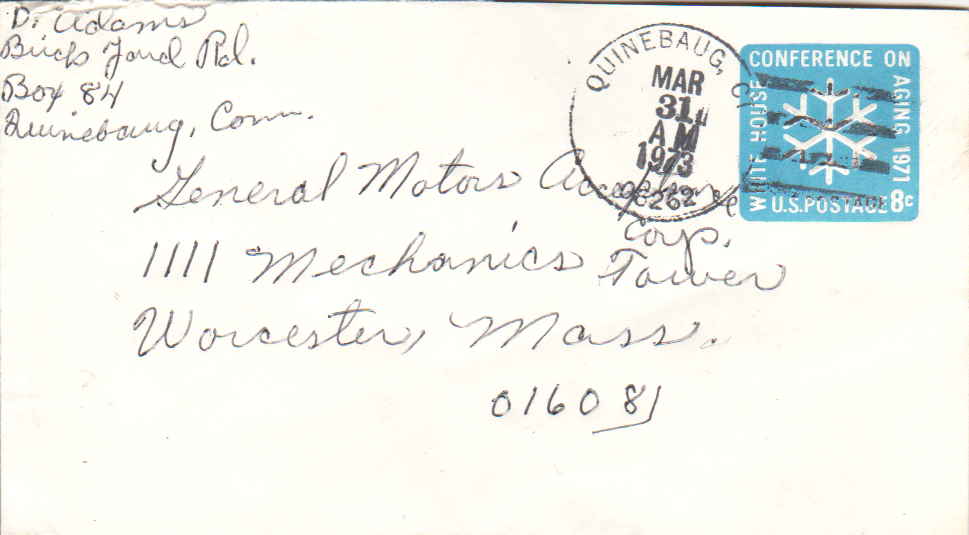 D. Adams
Buck Pond Rd.
Box 84
Quinebaug, Conn.
QUINEBAUG, CT
MAR
31
AM
1973
06262
WHITE HOUSE CONFERENCE ON AGING 1971
U.S. POSTAGE 8c
General Motors Acceptance
Corp.
1111 Mechanics Tower
Worcester, Mass.
016081